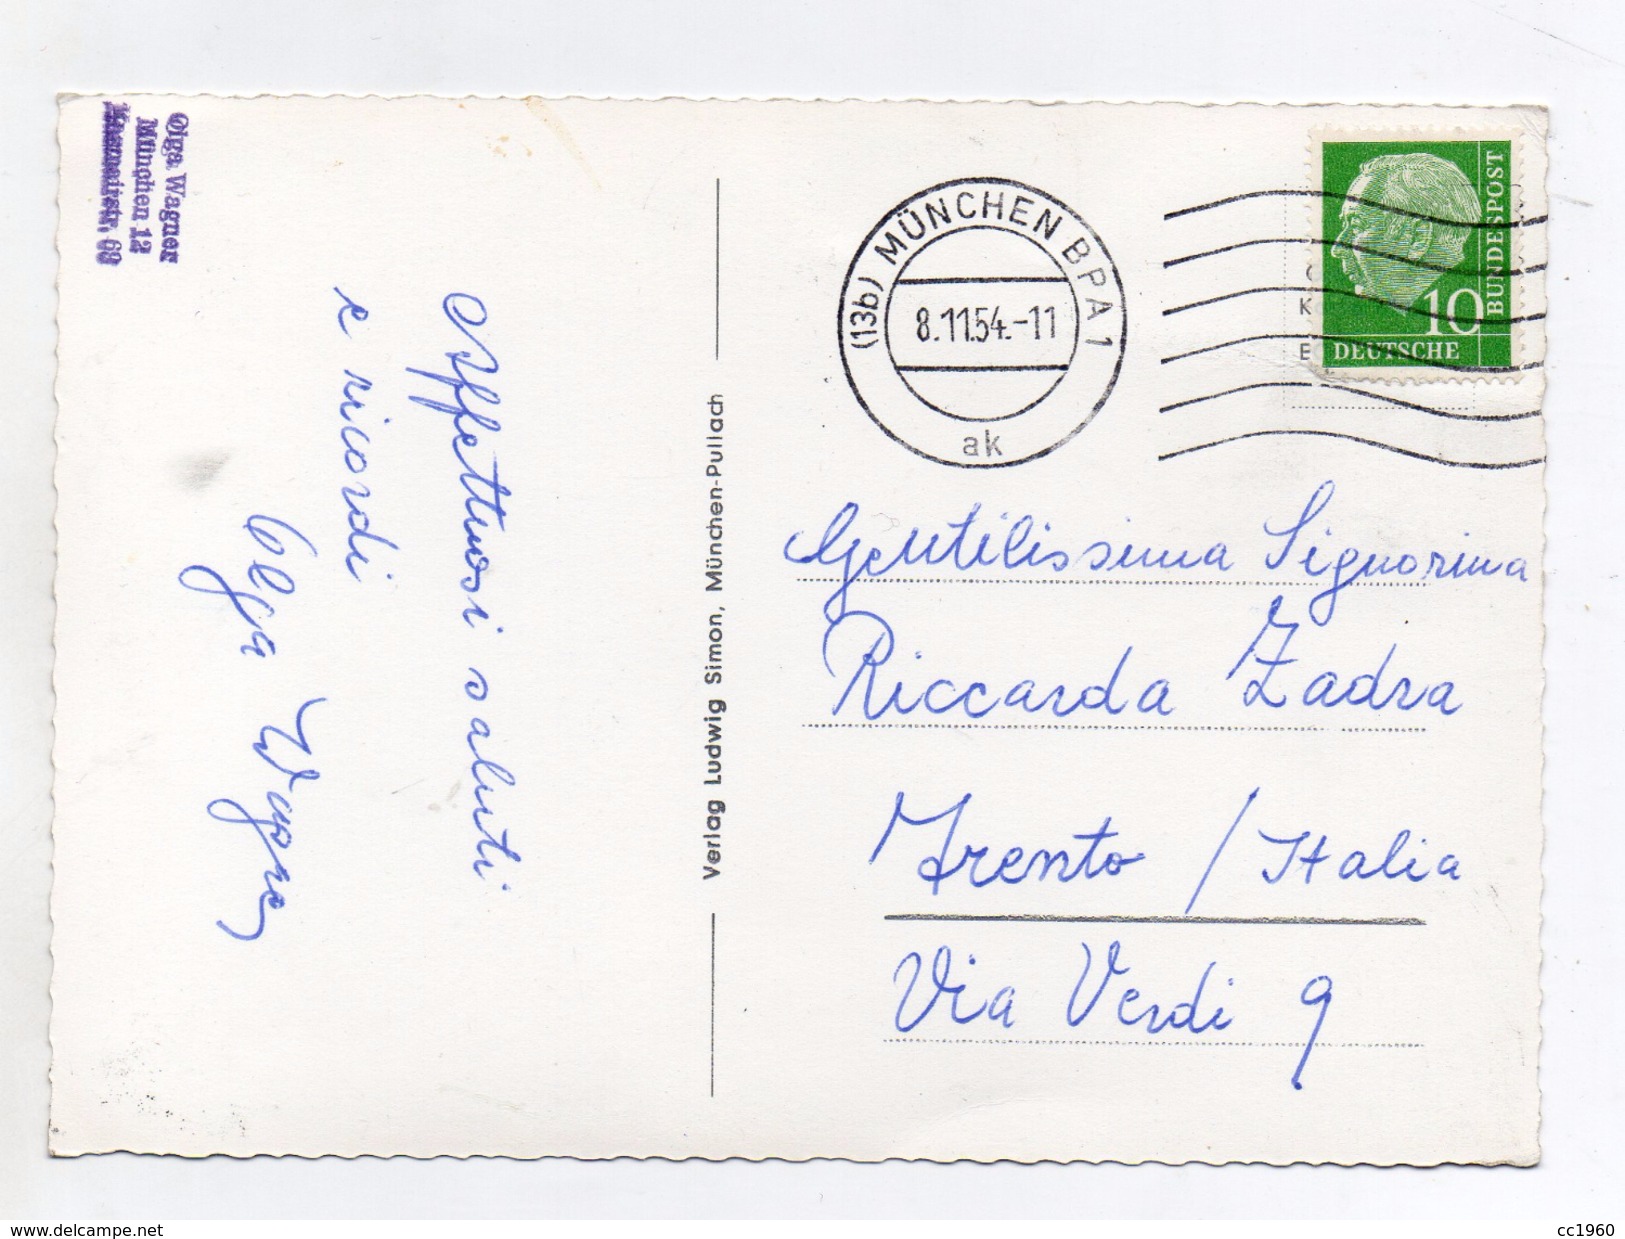 Olga Wagner
München 12
69
Affettuosi saluti
e ricordi
Olga Wagner
Verlag Ludwig Simon, München-Pullach
(13b) MÜNCHEN BPA 1
8.11.54.-11
ak
10
BUNDESPOST
DEUTSCHE
Gentilissima Signorina
Riccarda Zadra
Trento / Italia
Via Verdi 9
www.delcampe.net
cc1960